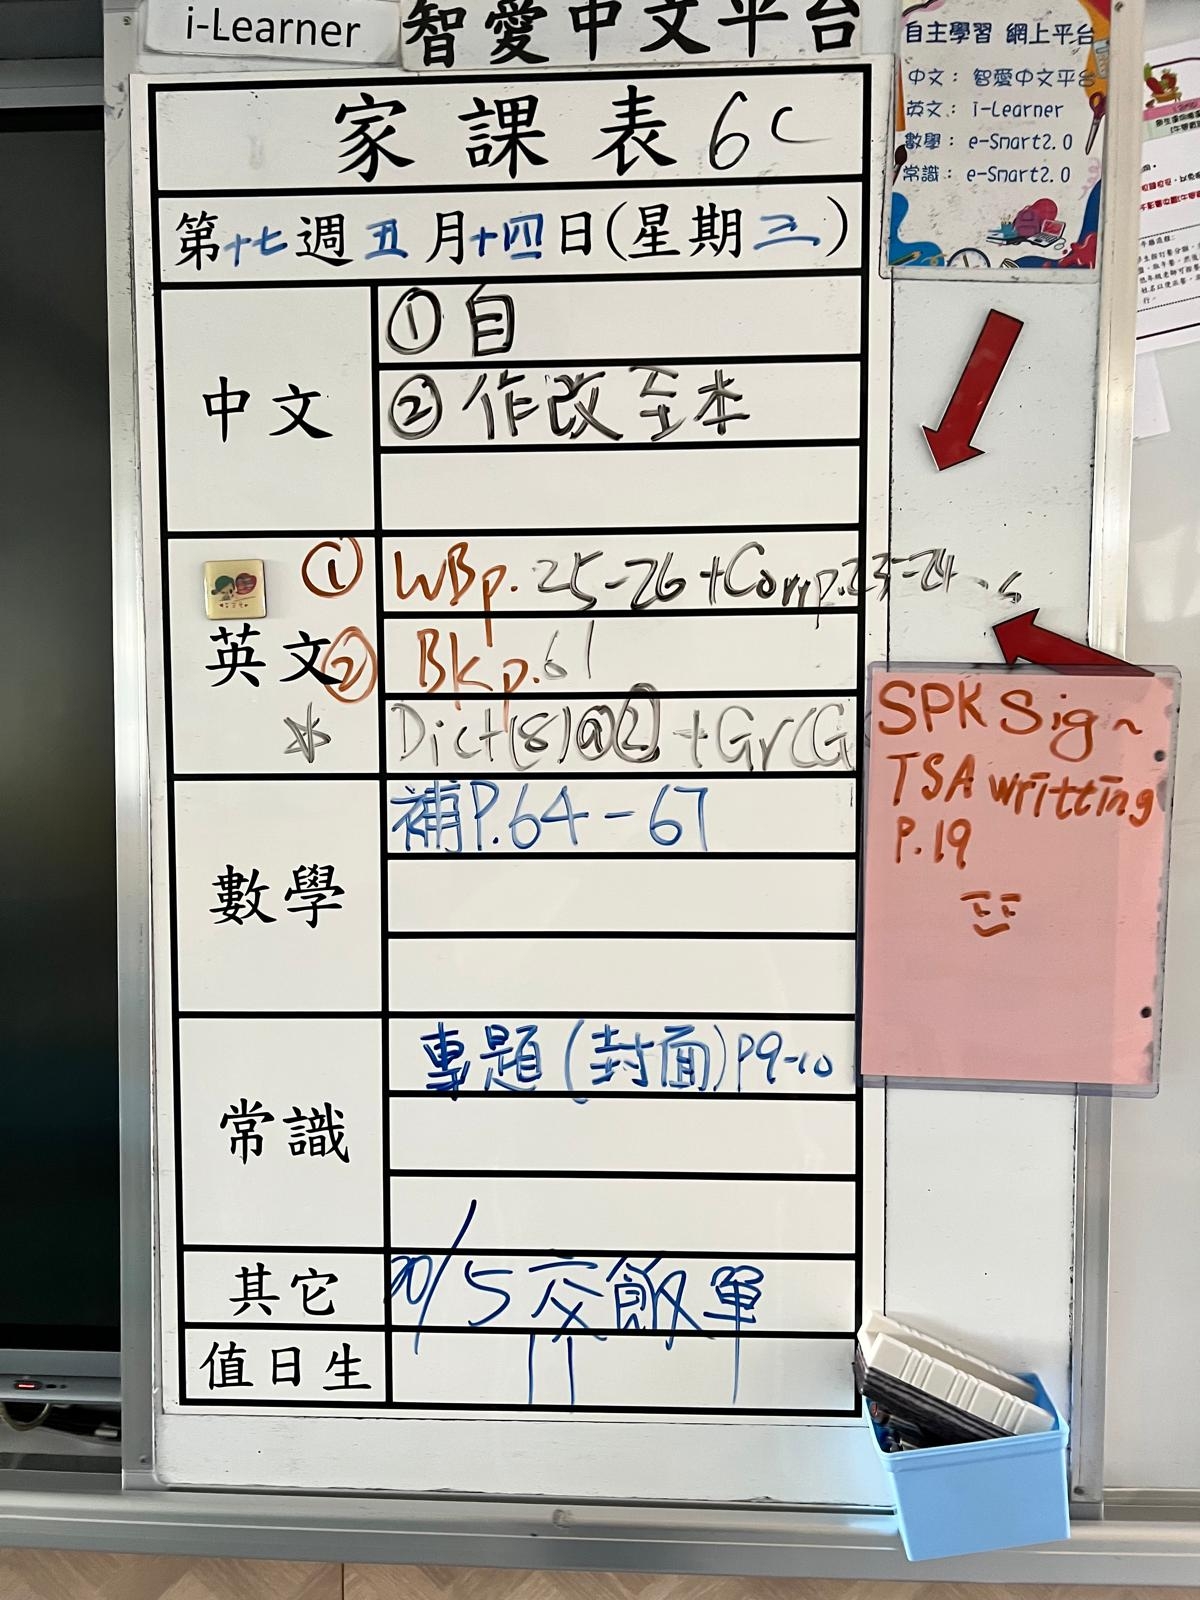 i-Learner
智愛中文平台
自主學習 網上平台
中文： 智愛中文平台
英文： i-Learner
數學： e-Smart2.0
常識： e-Smart2.0
家課表 6C
第十七週五月十四日(星期三)
中文
① 自
② 作改至本
英文
① WBp. 25-26 + Corr p.23-24
② Bk p.61
Dict(8)@② + Gr(G
SPK Sig~
TSA writting
P.19
數學
補P.64-67
常識
專題(封面)P9-10
其它
20/5交飯單
值日生